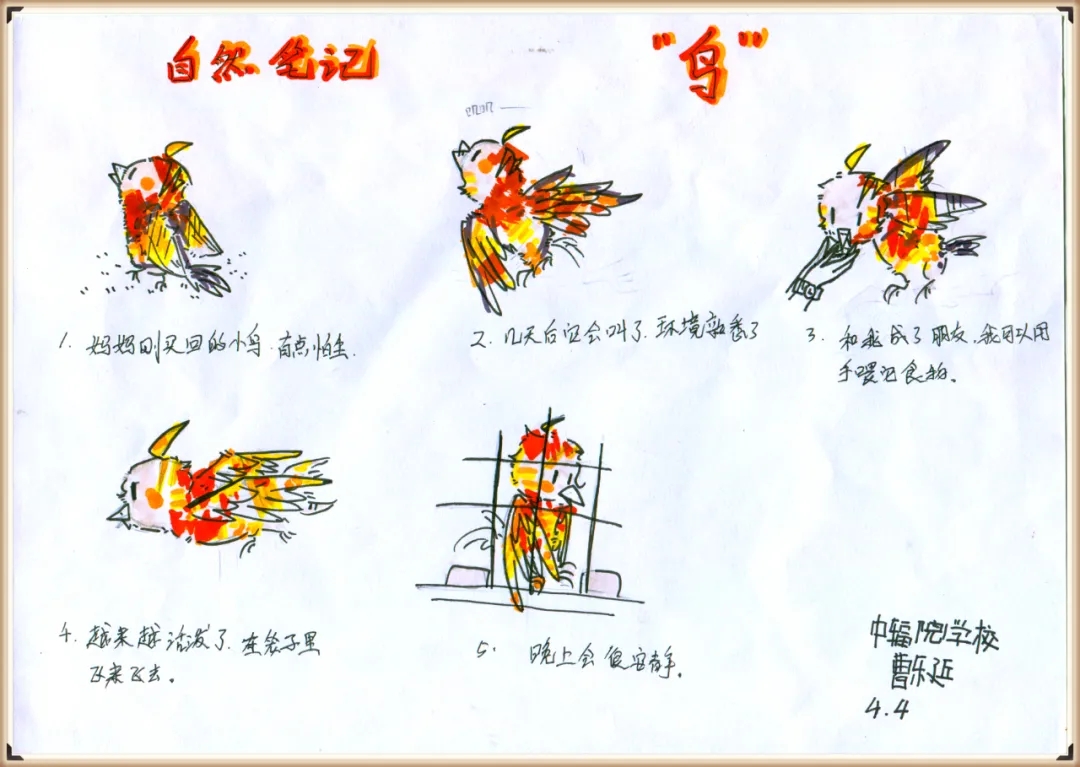 自然笔记
"鸟"
1. 妈妈刚买回的小鸟.有点怕生.
2. 几天后它会叫了.环境熟悉了
3. 和我成了朋友.我可以用
手喂它食物.
4. 越来越活泼了.在笼子里
飞来飞去。
5. 晚上会很安静.
中辐院学校
曹乐延
4.4